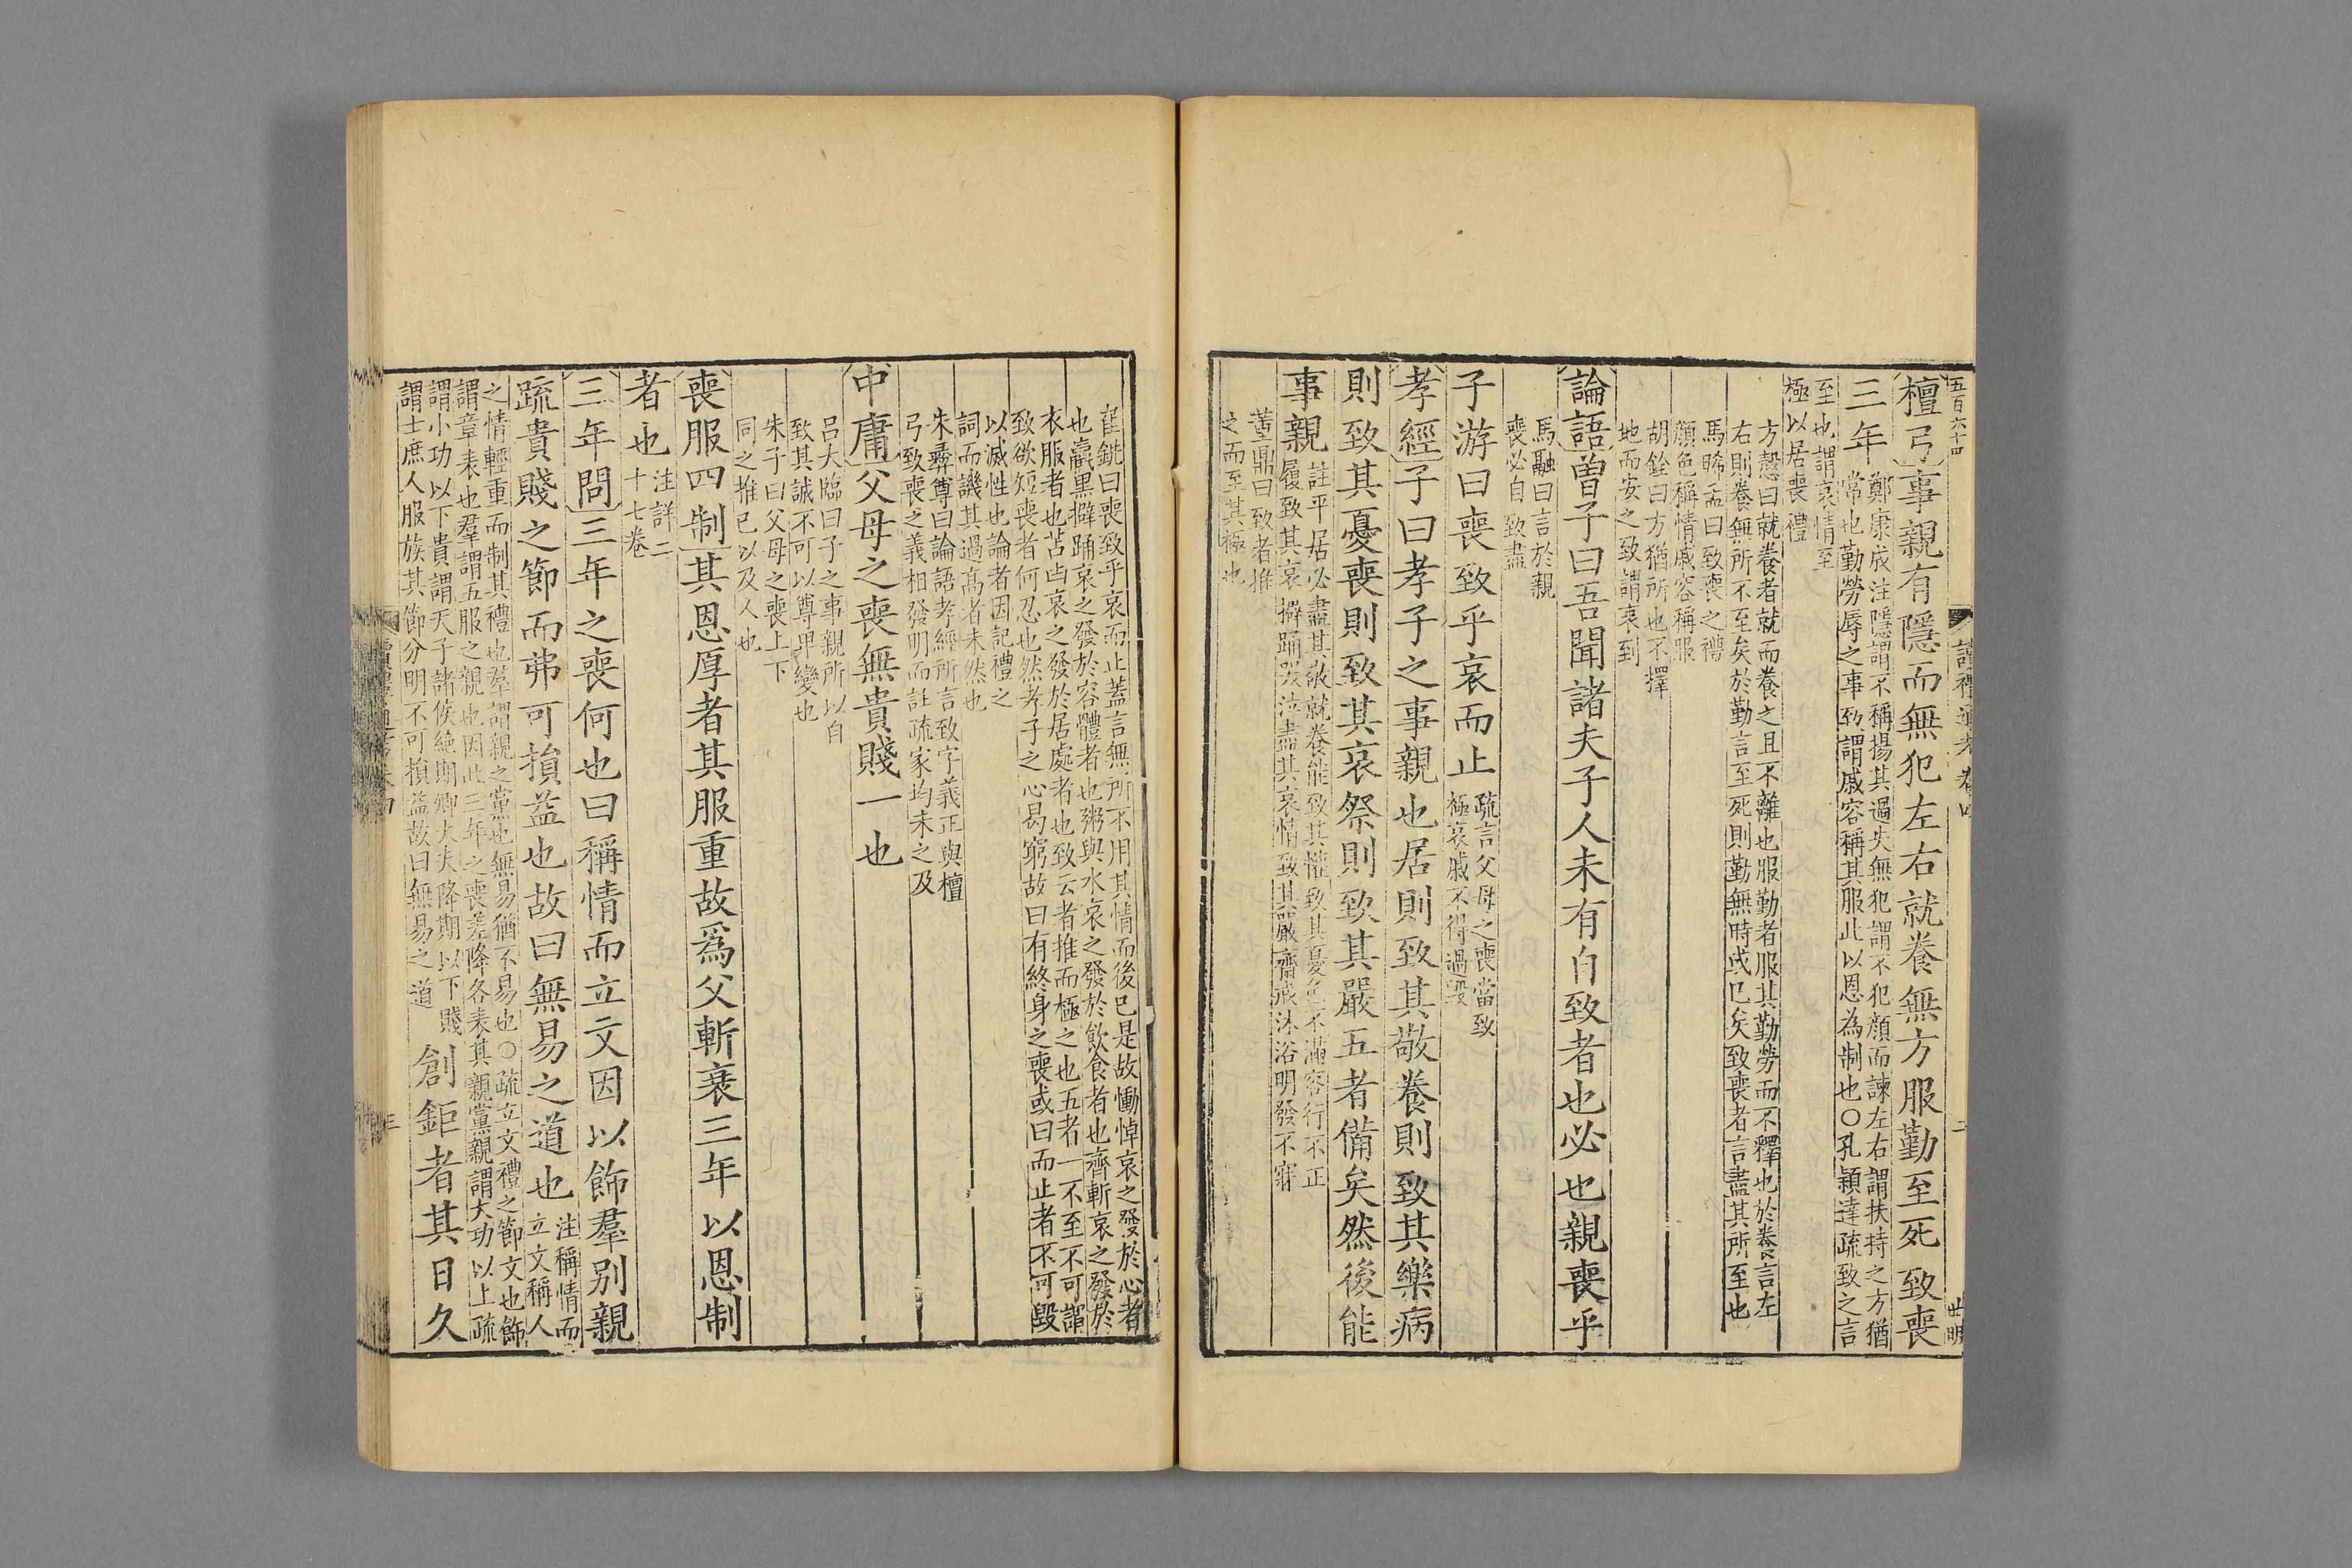 五百六十四
讀禮通考卷四
二
世明
檀弓事親有隱而無犯左右就養無方服勤至死致喪
三年
鄭康成注隱謂不稱揚其過失無犯謂不犯顏而諫左右謂扶持之方猶
常也勤勞辱之事致謂戚容稱其服此以恩為制也○孔穎達疏致之言
至也謂哀情至
極以居喪禮
方慤曰就養者就而養之且不離也服勤者服其勤勞而不釋也於養言左
右則養無所不至矣於勤言至死則勤無時或已矣致喪者言盡其所至也
馬晞孟曰致喪之禮
顏色稱情戚容稱服
胡銓曰方猶所也不擇
地而安之致謂哀到
論語曾子曰吾聞諸夫子人未有自致者也必也親喪乎
馬融曰言於親
喪必自致盡
子游曰喪致乎哀而止
疏言父母之喪當致
極哀戚不得過毀
孝經子曰孝子之事親也居則致其敬養則致其樂病
則致其憂喪則致其哀祭則致其嚴五者備矣然後能
事親
註平居必盡其敬就養能致其懽致其憂色不滿容行不正
履致其哀擗踊哭泣盡其哀情致其嚴齋戒沐浴明發不寐
董鼎曰致者推
之而至其極也
崔銑曰喪致乎哀而止蓋言無所不用其情而後已是故慟悼哀之發於心者
也羸黑擗踊哀之發於容體者也粥與水哀之發於飲食者也齊斬哀之發於
衣服者也苫凷哀之發於居處者也致云者推而極之也五者一不至不可謂
致欲短喪者何忍也然孝子之心曷窮故曰有終身之喪或曰而止者不可毀
以滅性也論者因記禮之
詞而譏其過高者未然也
朱彝尊曰論語孝經所言致字義正與檀
弓致喪之義相發明而註疏家均未之及
中庸父母之喪無貴賤一也
呂大臨曰子之事親所以自
致其誠不可以尊卑變也
朱子曰父母之喪上下
同之推己以及人也
喪服四制其恩厚者其服重故爲父斬衰三年以恩制
者也
注詳二
十七卷
三年問三年之喪何也曰稱情而立文因以飾羣別親
疏貴賤之節而弗可損益也故曰無易之道也
注稱情而
立文稱人
之情輕重而制其禮也羣謂親之黨也無易猶不易也○疏立文禮之節文也飾
謂章表也羣謂五服之親也因此三年之喪差降各表其親黨親謂大功以上疏
謂小功以下貴謂天子諸侯絶期卿大夫降期以下賤
謂士庶人服族其節分明不可損益故曰無易之道
創鉅者其日久
三